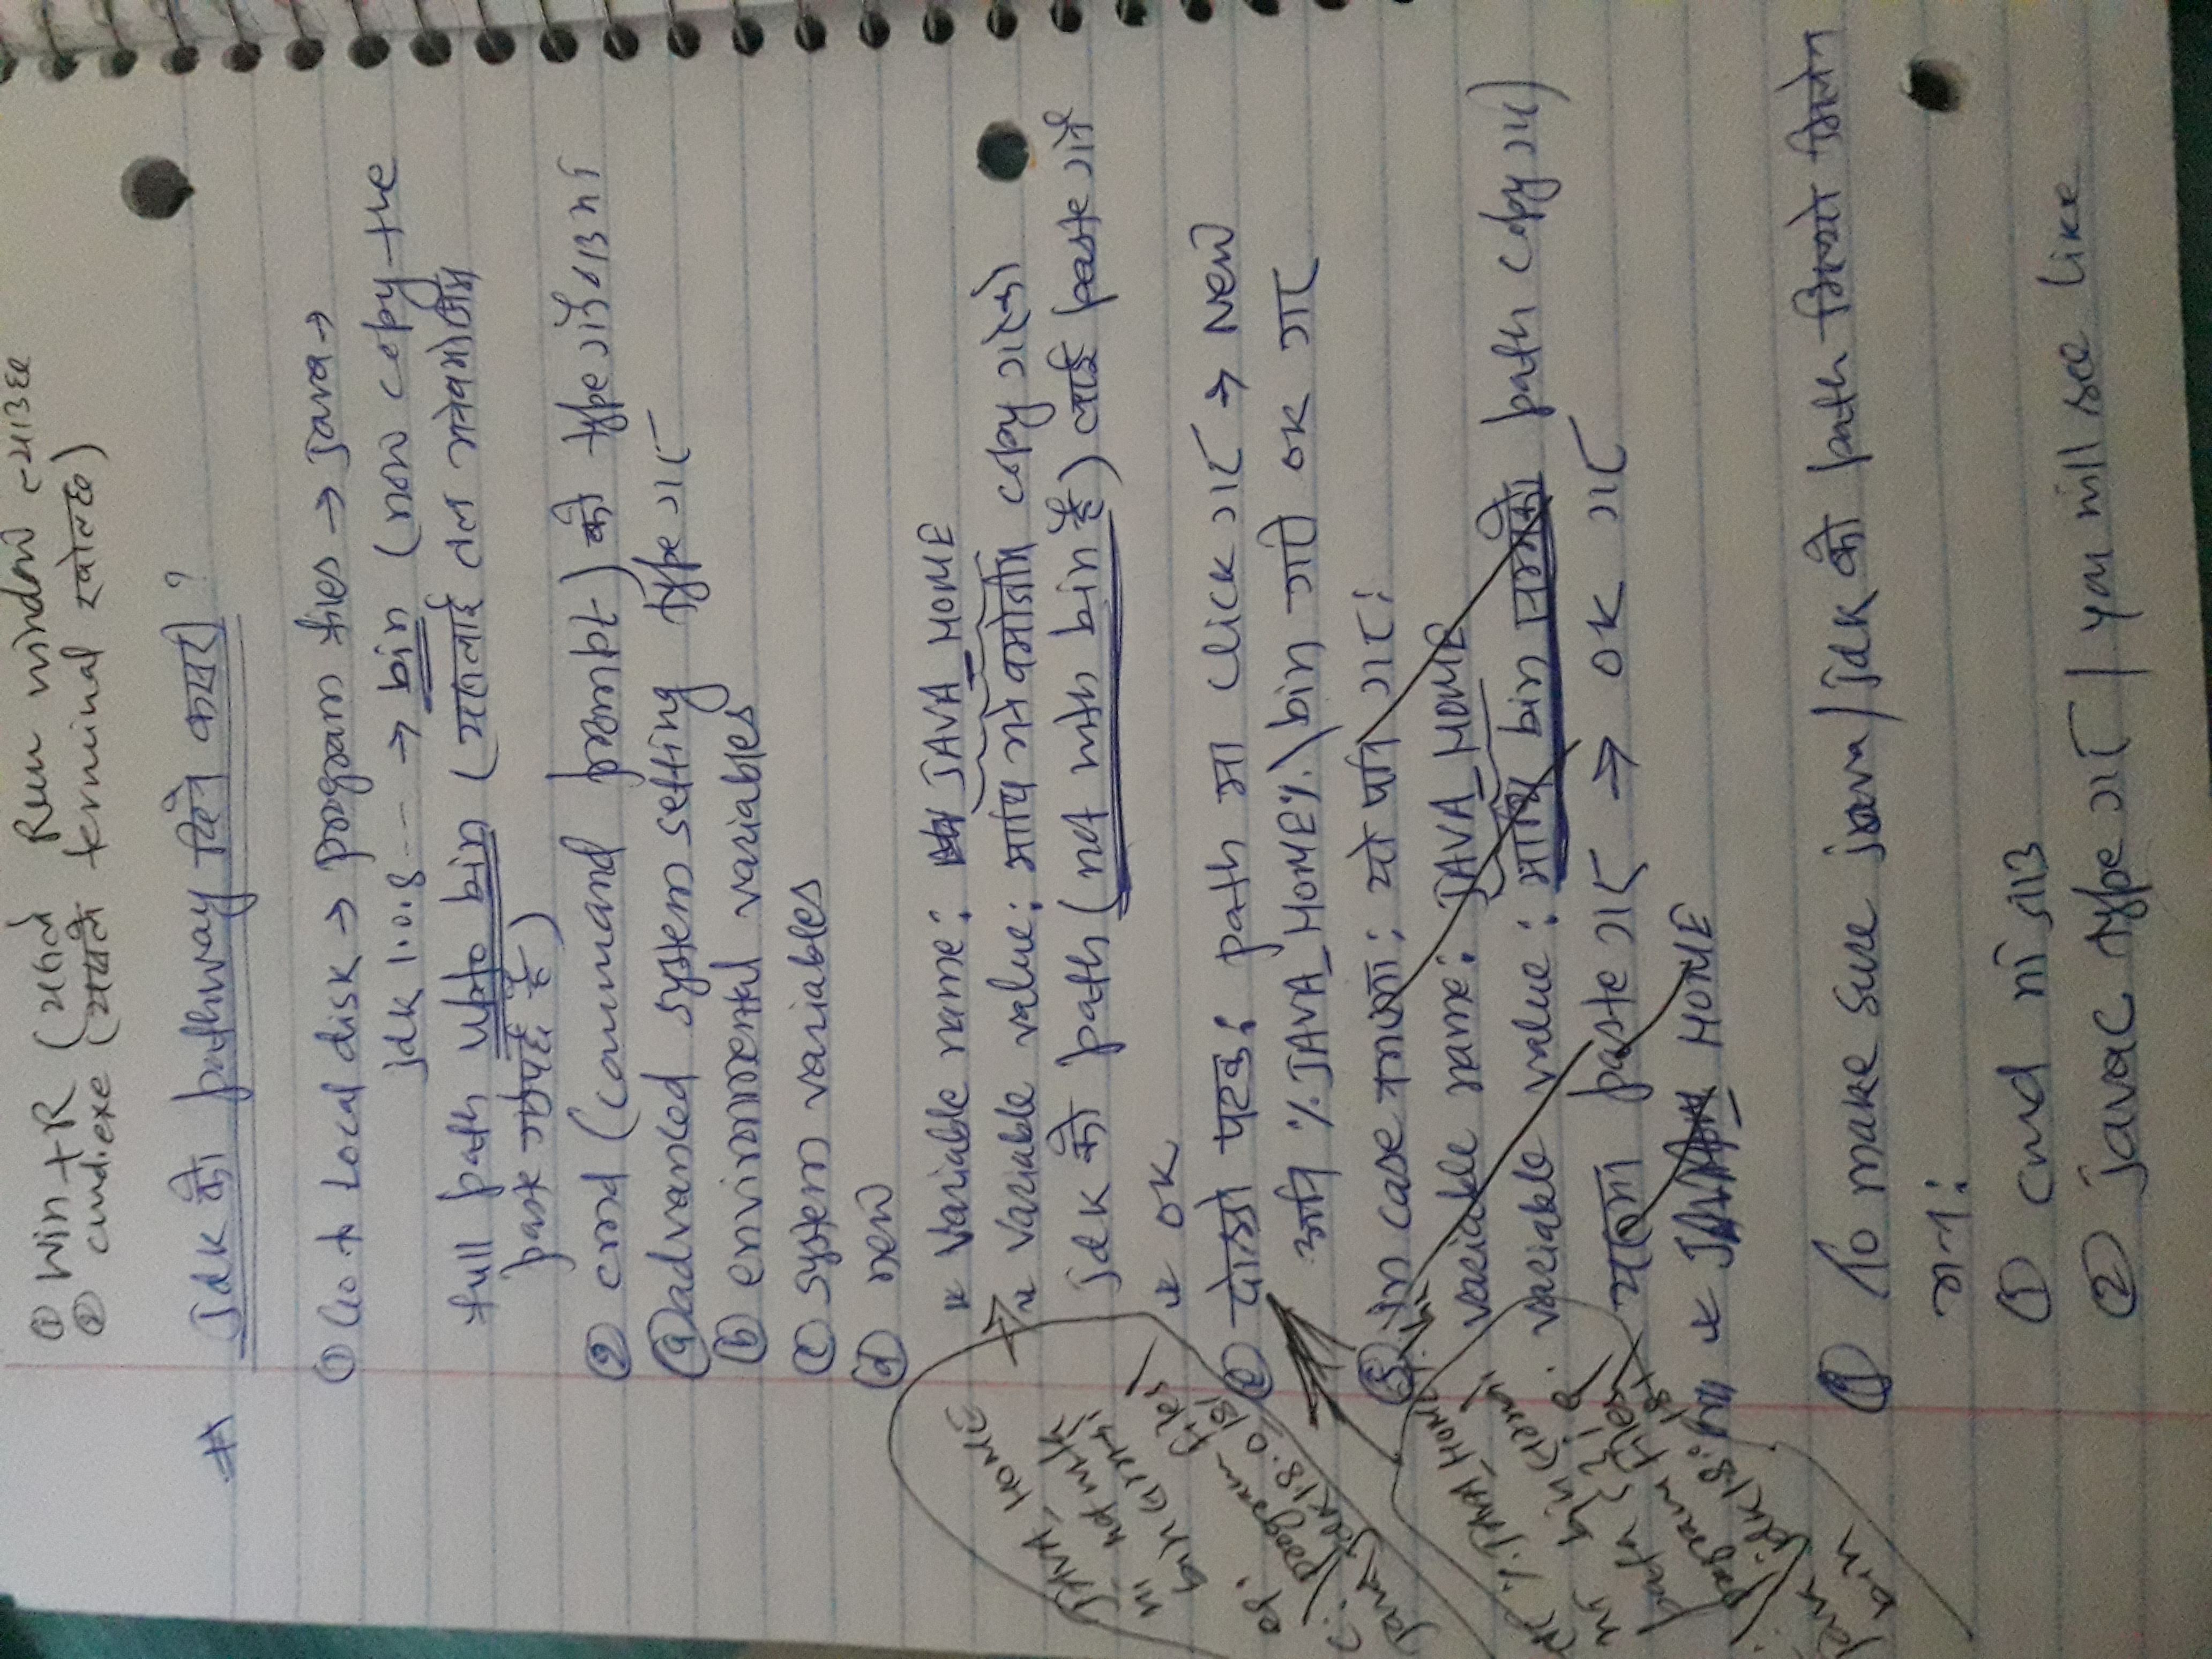 ① Win + R (यसले Run window ल्याउछ
② cmd.exe (यसले terminal खोल्छ)
# Jdk को pathway दिने कसरी ?
① Go to Local disk → program files → Java →
jdk 1.0.8 --- → bin (now copy the
full path upto bin (यसलाई तल भनेबमोजिम
paste गर्नुपर्छ है)
② cmd (command prompt) को type गर्ने ठाउँमा
ⓐ advanced system setting type गर
ⓑ environmental variables
ⓒ system variables
ⓓ new
* Variable name: JAVA_HOME
* Variable value: माथि भनेबमोजिम copy गरेको
jdk को path (not with bin है) लाई paste गर्ने
* OK
ⓔ दोस्रो पटक: path मा click गर → New
अनि %JAVA_HOME%\bin गरी OK गर
③ in case नभएमा: यो पनि गर:
variable name: JAVA_HOME
variable value: माथि bin सम्मको path copy गर)
यसमा paste गर → OK गर
* JAVA HOME
JAVA_HOME
मा not with
bin
eg.
C:\program files\
Java\jdk1.8.0_181
%JAVA_HOME%
मा bin
path i.e.
C:\program files\
java\jdk1.8.0_181\
bin
④ To make sure java/jdk को path मिल्यो मिलेन
भन्न:
① cmd मा जाउ
② javac type गर / you will see like